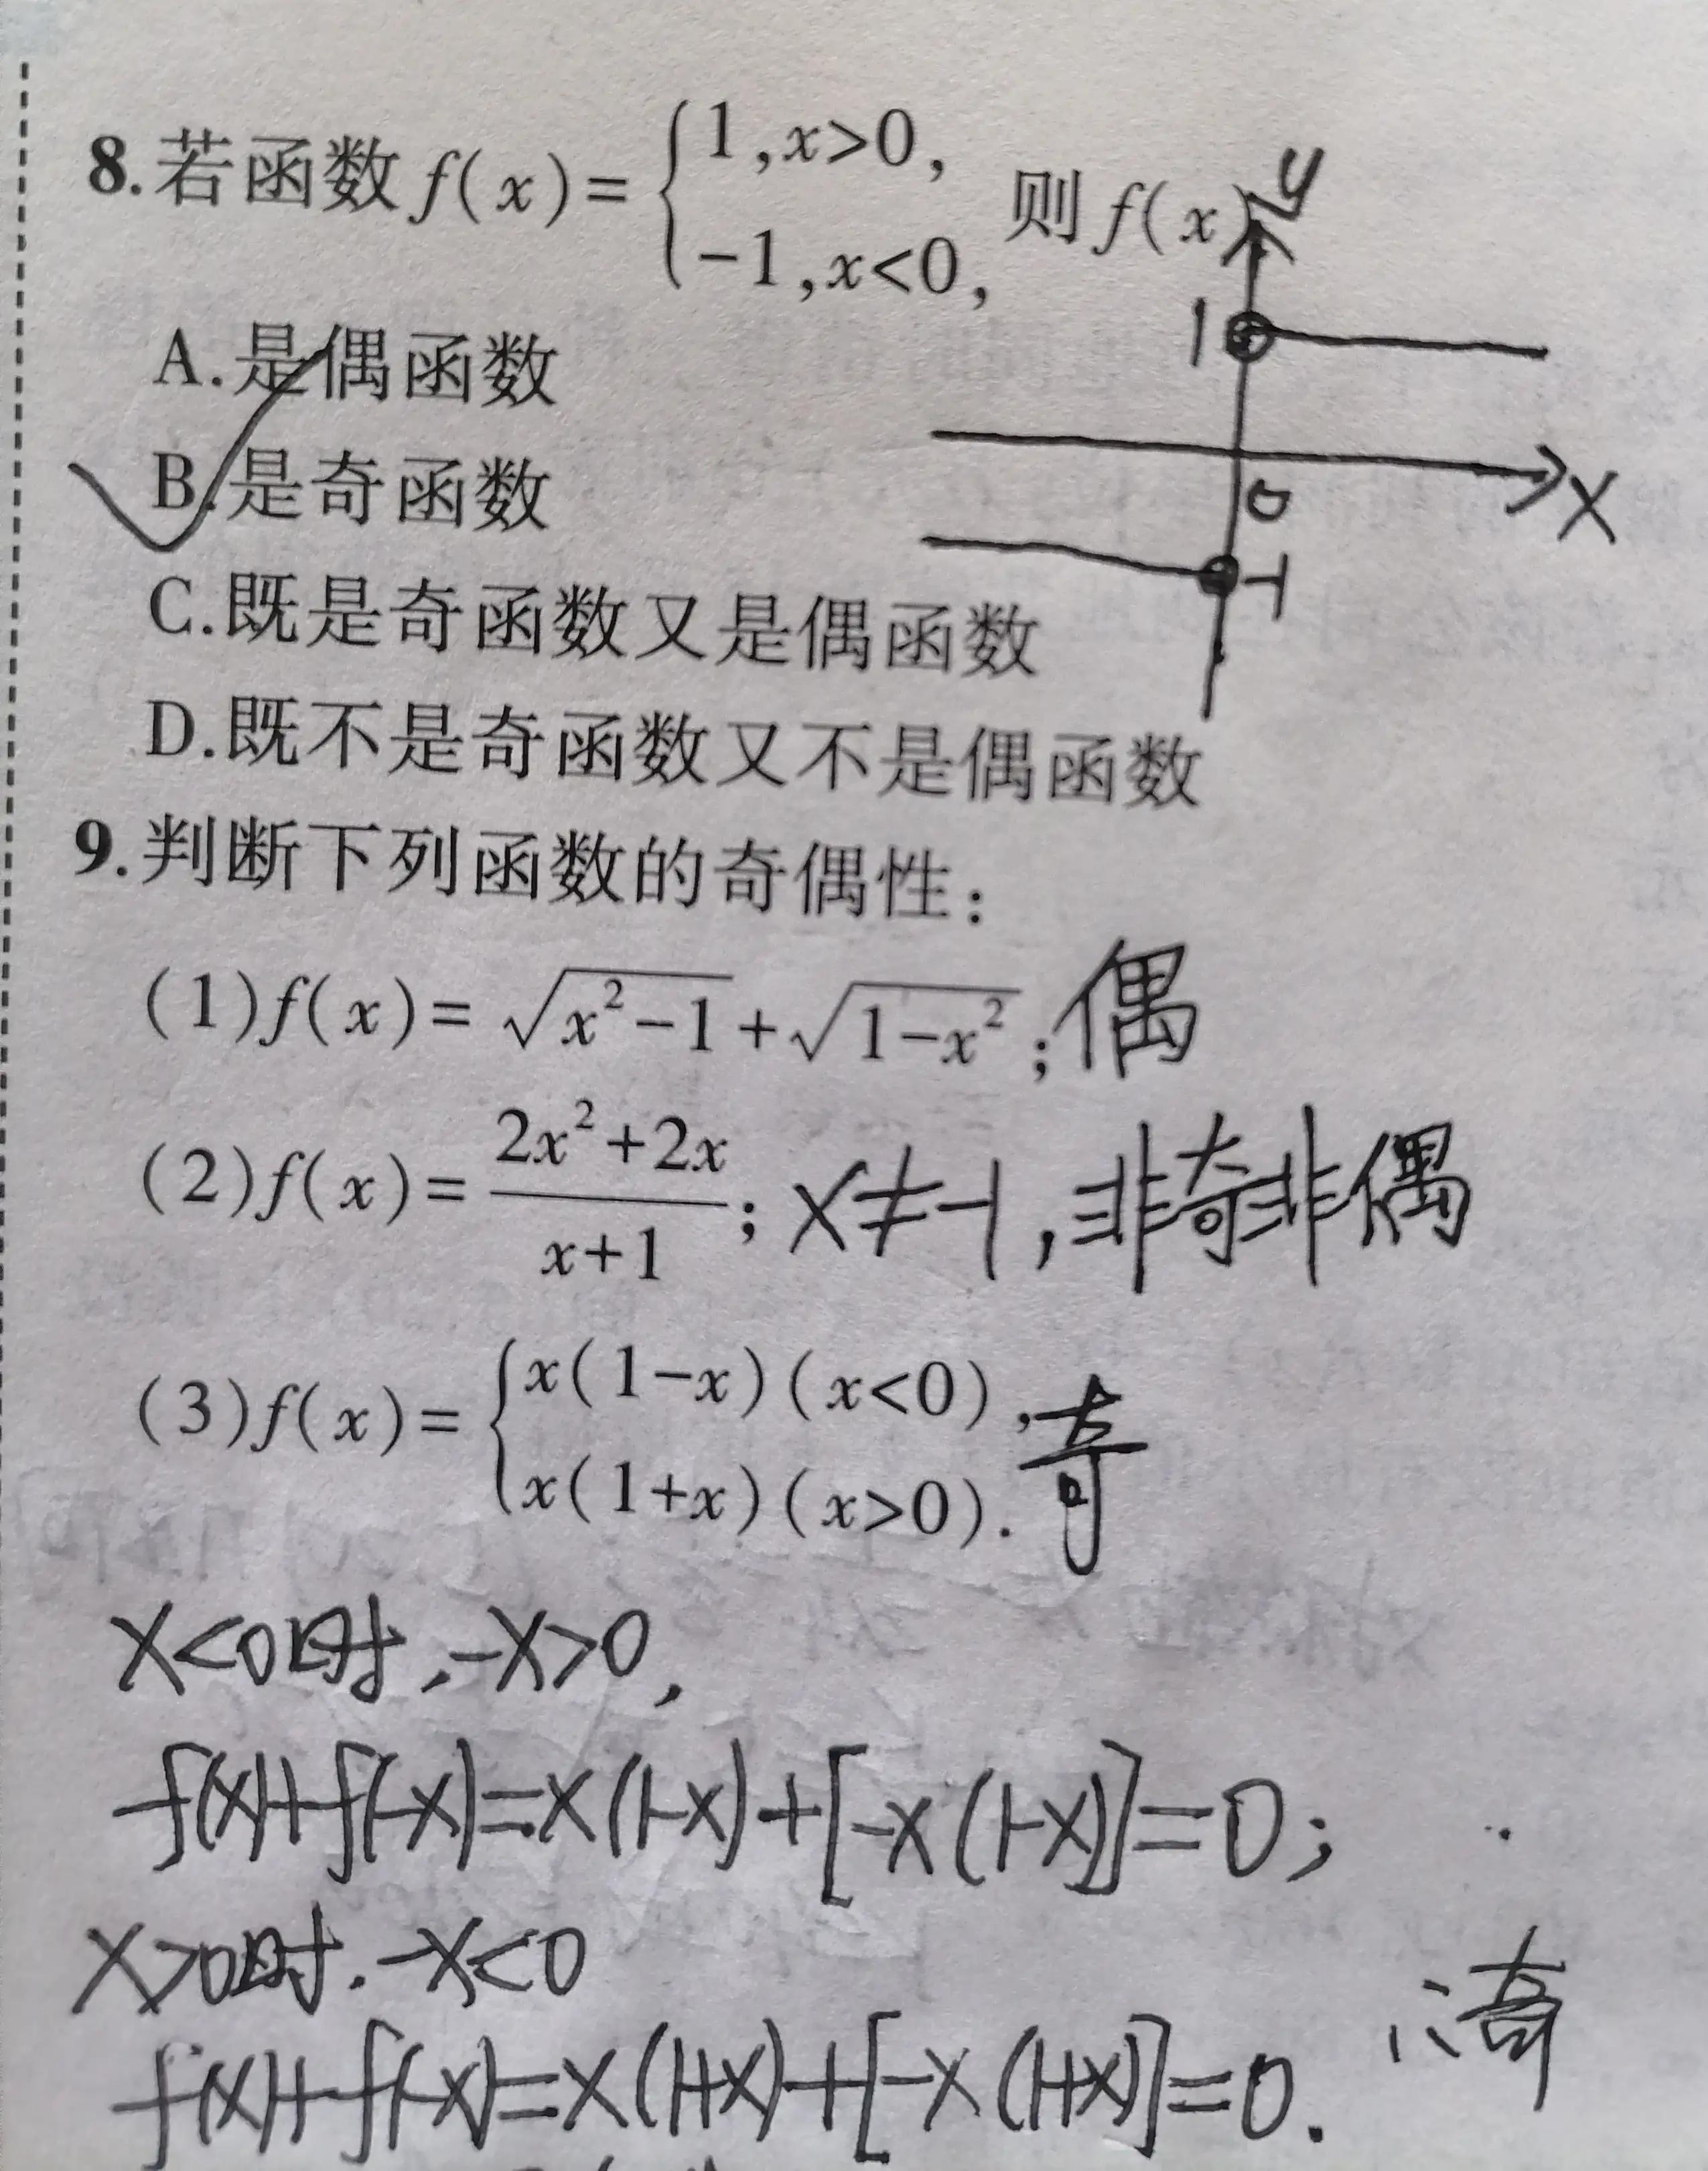 8.若函数f(x)={1,x>0,
-1,x<0, 则f(x)
y
1
A.是偶函数
B.是奇函数
0
x
-1
C.既是奇函数又是偶函数
D.既不是奇函数又不是偶函数
9.判断下列函数的奇偶性:
(1)f(x)=√(x²-1)+√(1-x²);偶
(2)f(x)=(2x²+2x)/(x+1);x≠-1,非奇非偶
(3)f(x)={x(1-x)(x<0),
x(1+x)(x>0). 奇
x<0时,-x>0,
f(x)+f(-x)=x(1-x)+[-x(1-x)]=0;
x>0时.-x<0
∴奇
f(x)+f(-x)=x(1+x)+[-x(1+x)]=0.